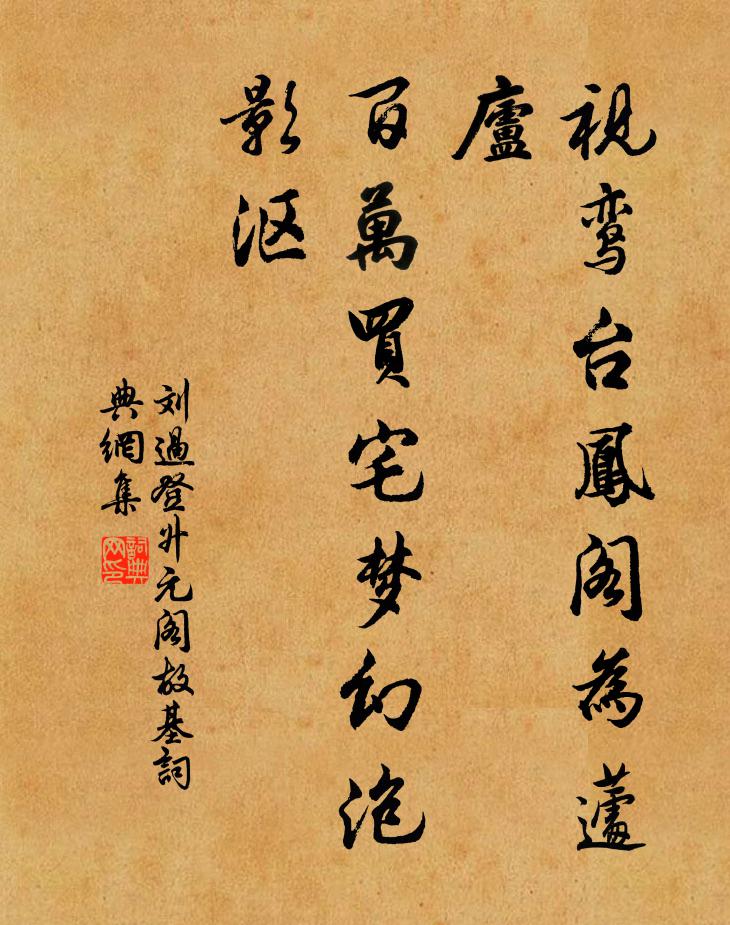 視鸾台鳳阁為蘧
廬
百萬買宅梦幻泡
影沤
刘過登升元阁故基詞
典網集
詞典
网印